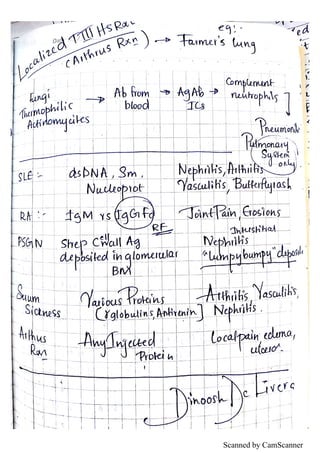 Localized TIII HsRxn
(Arthus Rxn) → eg:- Farmer's lung
Fungi
Thermophilic
Actinomycites → Ab from
blood → AgAb →
ICs
Complement
neutrophils
Pneumonia
Pulmonary
System
only
SLE :- dsDNA, Sm. Nucleoprot Nephritis, Arthritis
Vasculitis, Butterflyrash
RA :- IgM vs IgG Fc Joint Pain, Erosions
RF
PSGN Strep Cell wall Ag
deposited in glomerular
BM
Interstitial
Nephritis
"Lumpybumpy" deposits
Serum
Sickness Various Proteins
(γglobulins, Antivenin) Arthritis, Vasculitis,
Nephritis.
Arthus
Rxn Any Injected
Protein Local pain edema,
ulcers.
Dinoosh De Livera
Scanned by CamScanner